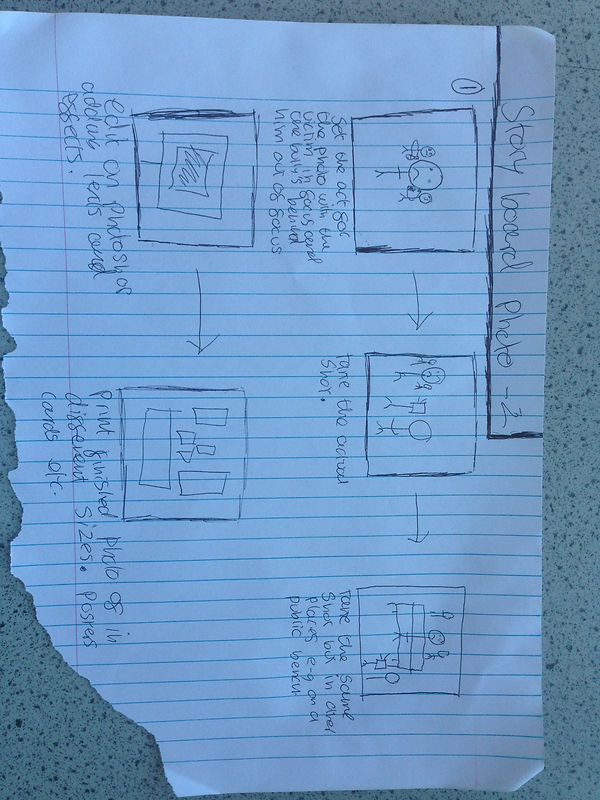 Story board Photo - 2
1
Set the act for
the photo with the
victim in focus and
the bully's behind
him out of focus
take the actual
Shot.
take the same
Shot but in other
places e-g on a
public bench
edit on photoshop
adding text and
effects.
Print finished photo of in
different sizes. posters
cards etc.